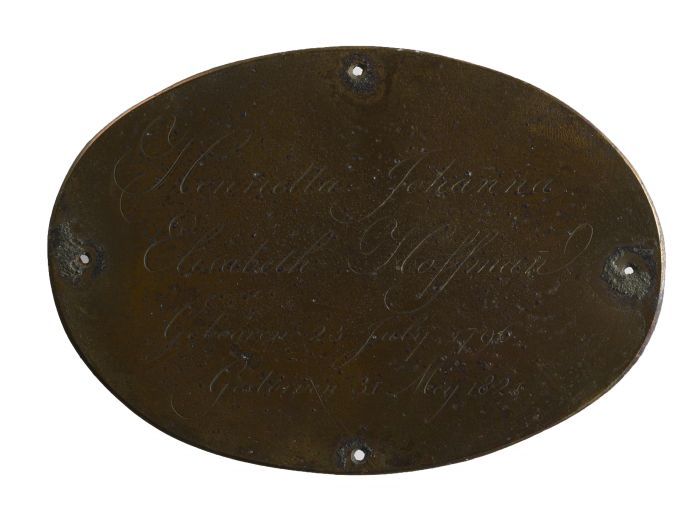 Henrietta Johanna
Elisabeth Hoffman
Gebooren 23 July
Gestorven 31 Mey